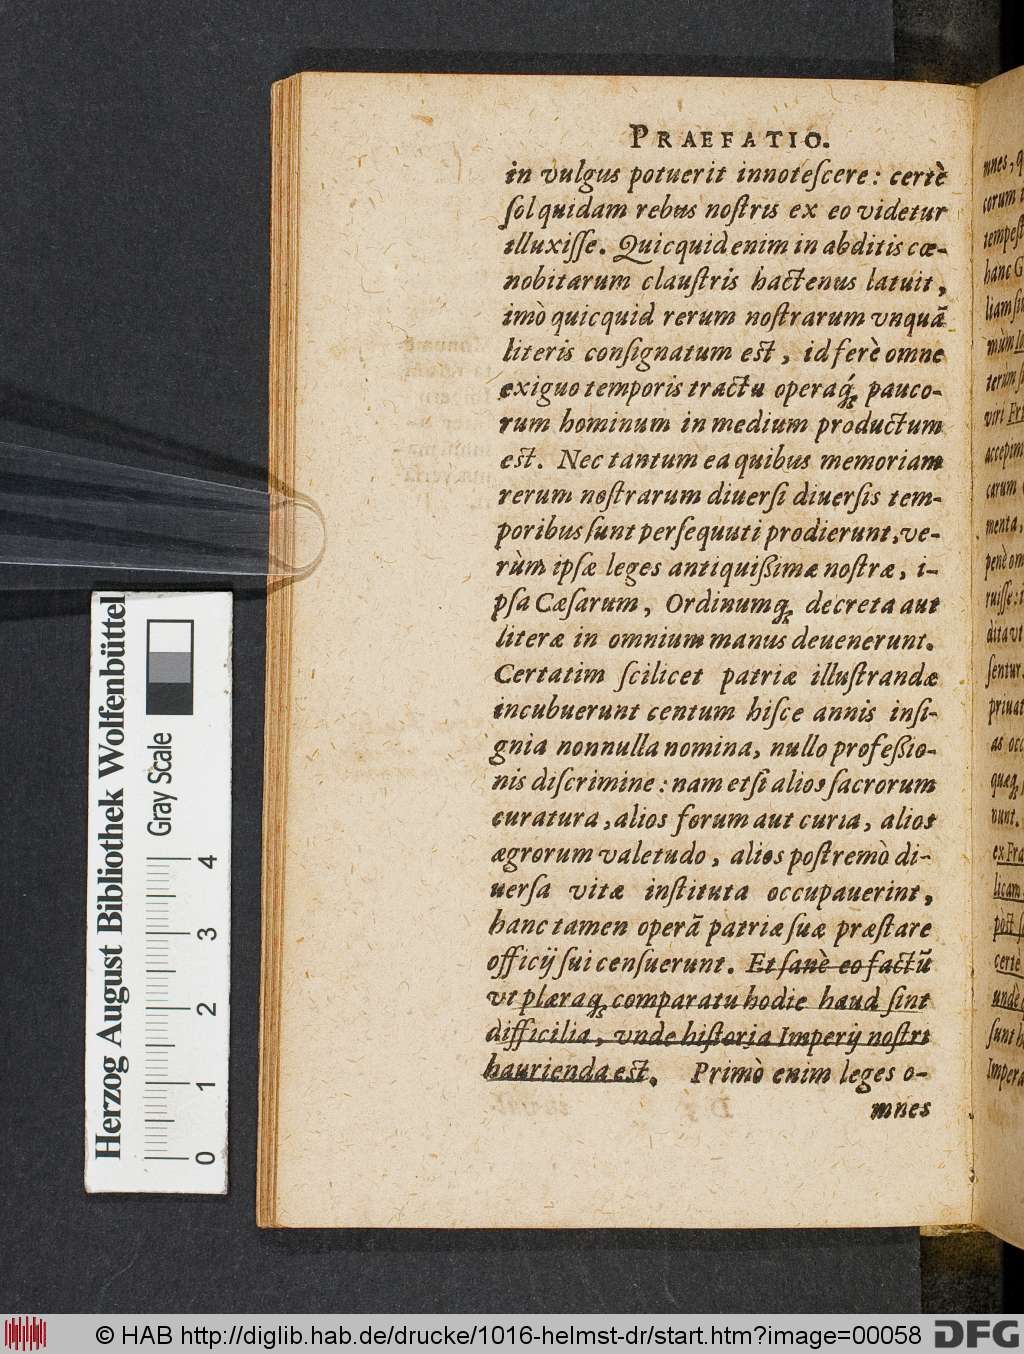 PRAEFATIO.
in vulgus potuerit innoteſcere: certè
ſol quidam rebus noſtris ex eo videtur
illuxiſſe. Quicquid enim in abditis cœ-
nobitarum clauſtris hactenus latuit,
imò quicquid rerum noſtrarum vnquã
literis conſignatum est, id ferè omne
exiguo temporis tractu operaq́ꝫ pauco-
rum hominum in medium productum
est. Nec tantum ea quibus memoriam
rerum noſtrarum diuerſi diuerſis tem-
poribus ſunt perſequuti prodierunt, ve-
rùm ipſæ leges antiquißimæ noſtræ, i-
pſa Cæſarum, Ordinumqꝫ decreta aut
literæ in omnium manus deuenerunt.
Certatim ſcilicet patriæ illuſtrandæ
incubuerunt centum hiſce annis inſi-
gnia nonnulla nomina, nullo profeßio-
nis diſcrimine: nam etſi alios ſacrorum
curatura, alios forum aut curia, alios
ægrorum valetudo, alios poſtremò di-
uerſa vitæ inſtituta occupauerint,
hanc tamen operã patriæ ſuæ præſtare
officij ſui cenſuerunt. Et ſanè eo factũ
vt plæraqꝫ comparatu hodie haud ſint
difficilia, vnde hiſtoria Imperij noſtri
haurienda est. Primò enim leges o-
mnes
mnes, q
corum
tempeſt
hanc G
liam
viri
accepim
carum
menta,
ruiſſe:
dita vt
ſentur
priuat
as occ
quæqꝫ
runt.
ex Fra
licam
pòst
certè
unde
ſunt
Impera
Herzog August Bibliothek Wolfenbüttel
Gray Scale
0 1 2 3 4
© HAB http://diglib.hab.de/drucke/1016-helmst-dr/start.htm?image=00058
DFG